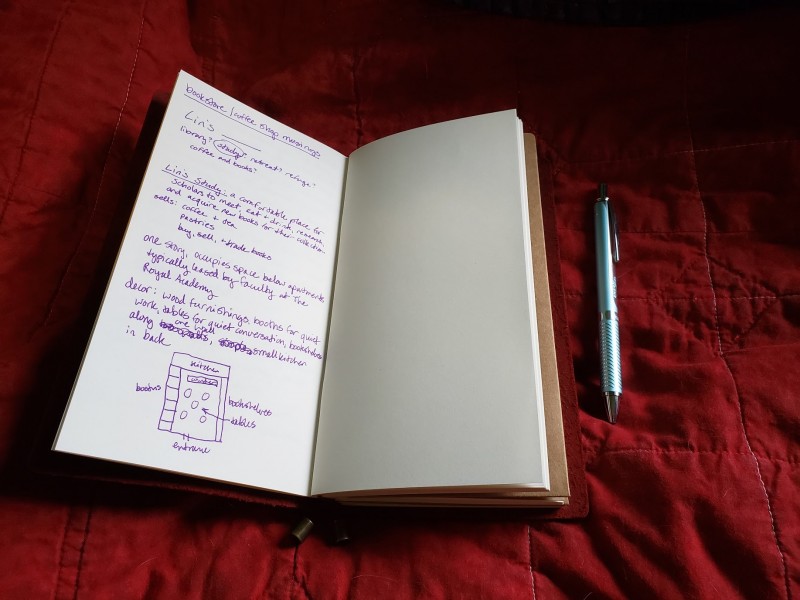 bookstore/coffee shop musings
Lin's ______
library? study? retreat? refuge?
coffee and books?
Lin's Study: a comfortable place for
scholars to meet, eat + drink, research,
and acquire new books for their collection
sells: coffee + tea
pastries
buy, sell, + trade books
one story, occupies space below apartments
typically leased by faculty at The
Royal Academy
decor: wood furnishings, booths for quiet
work, tables for quiet conversation, bookshelves
along one wall, small kitchen
in back
kitchen
booths
bookshelves
tables
entrance